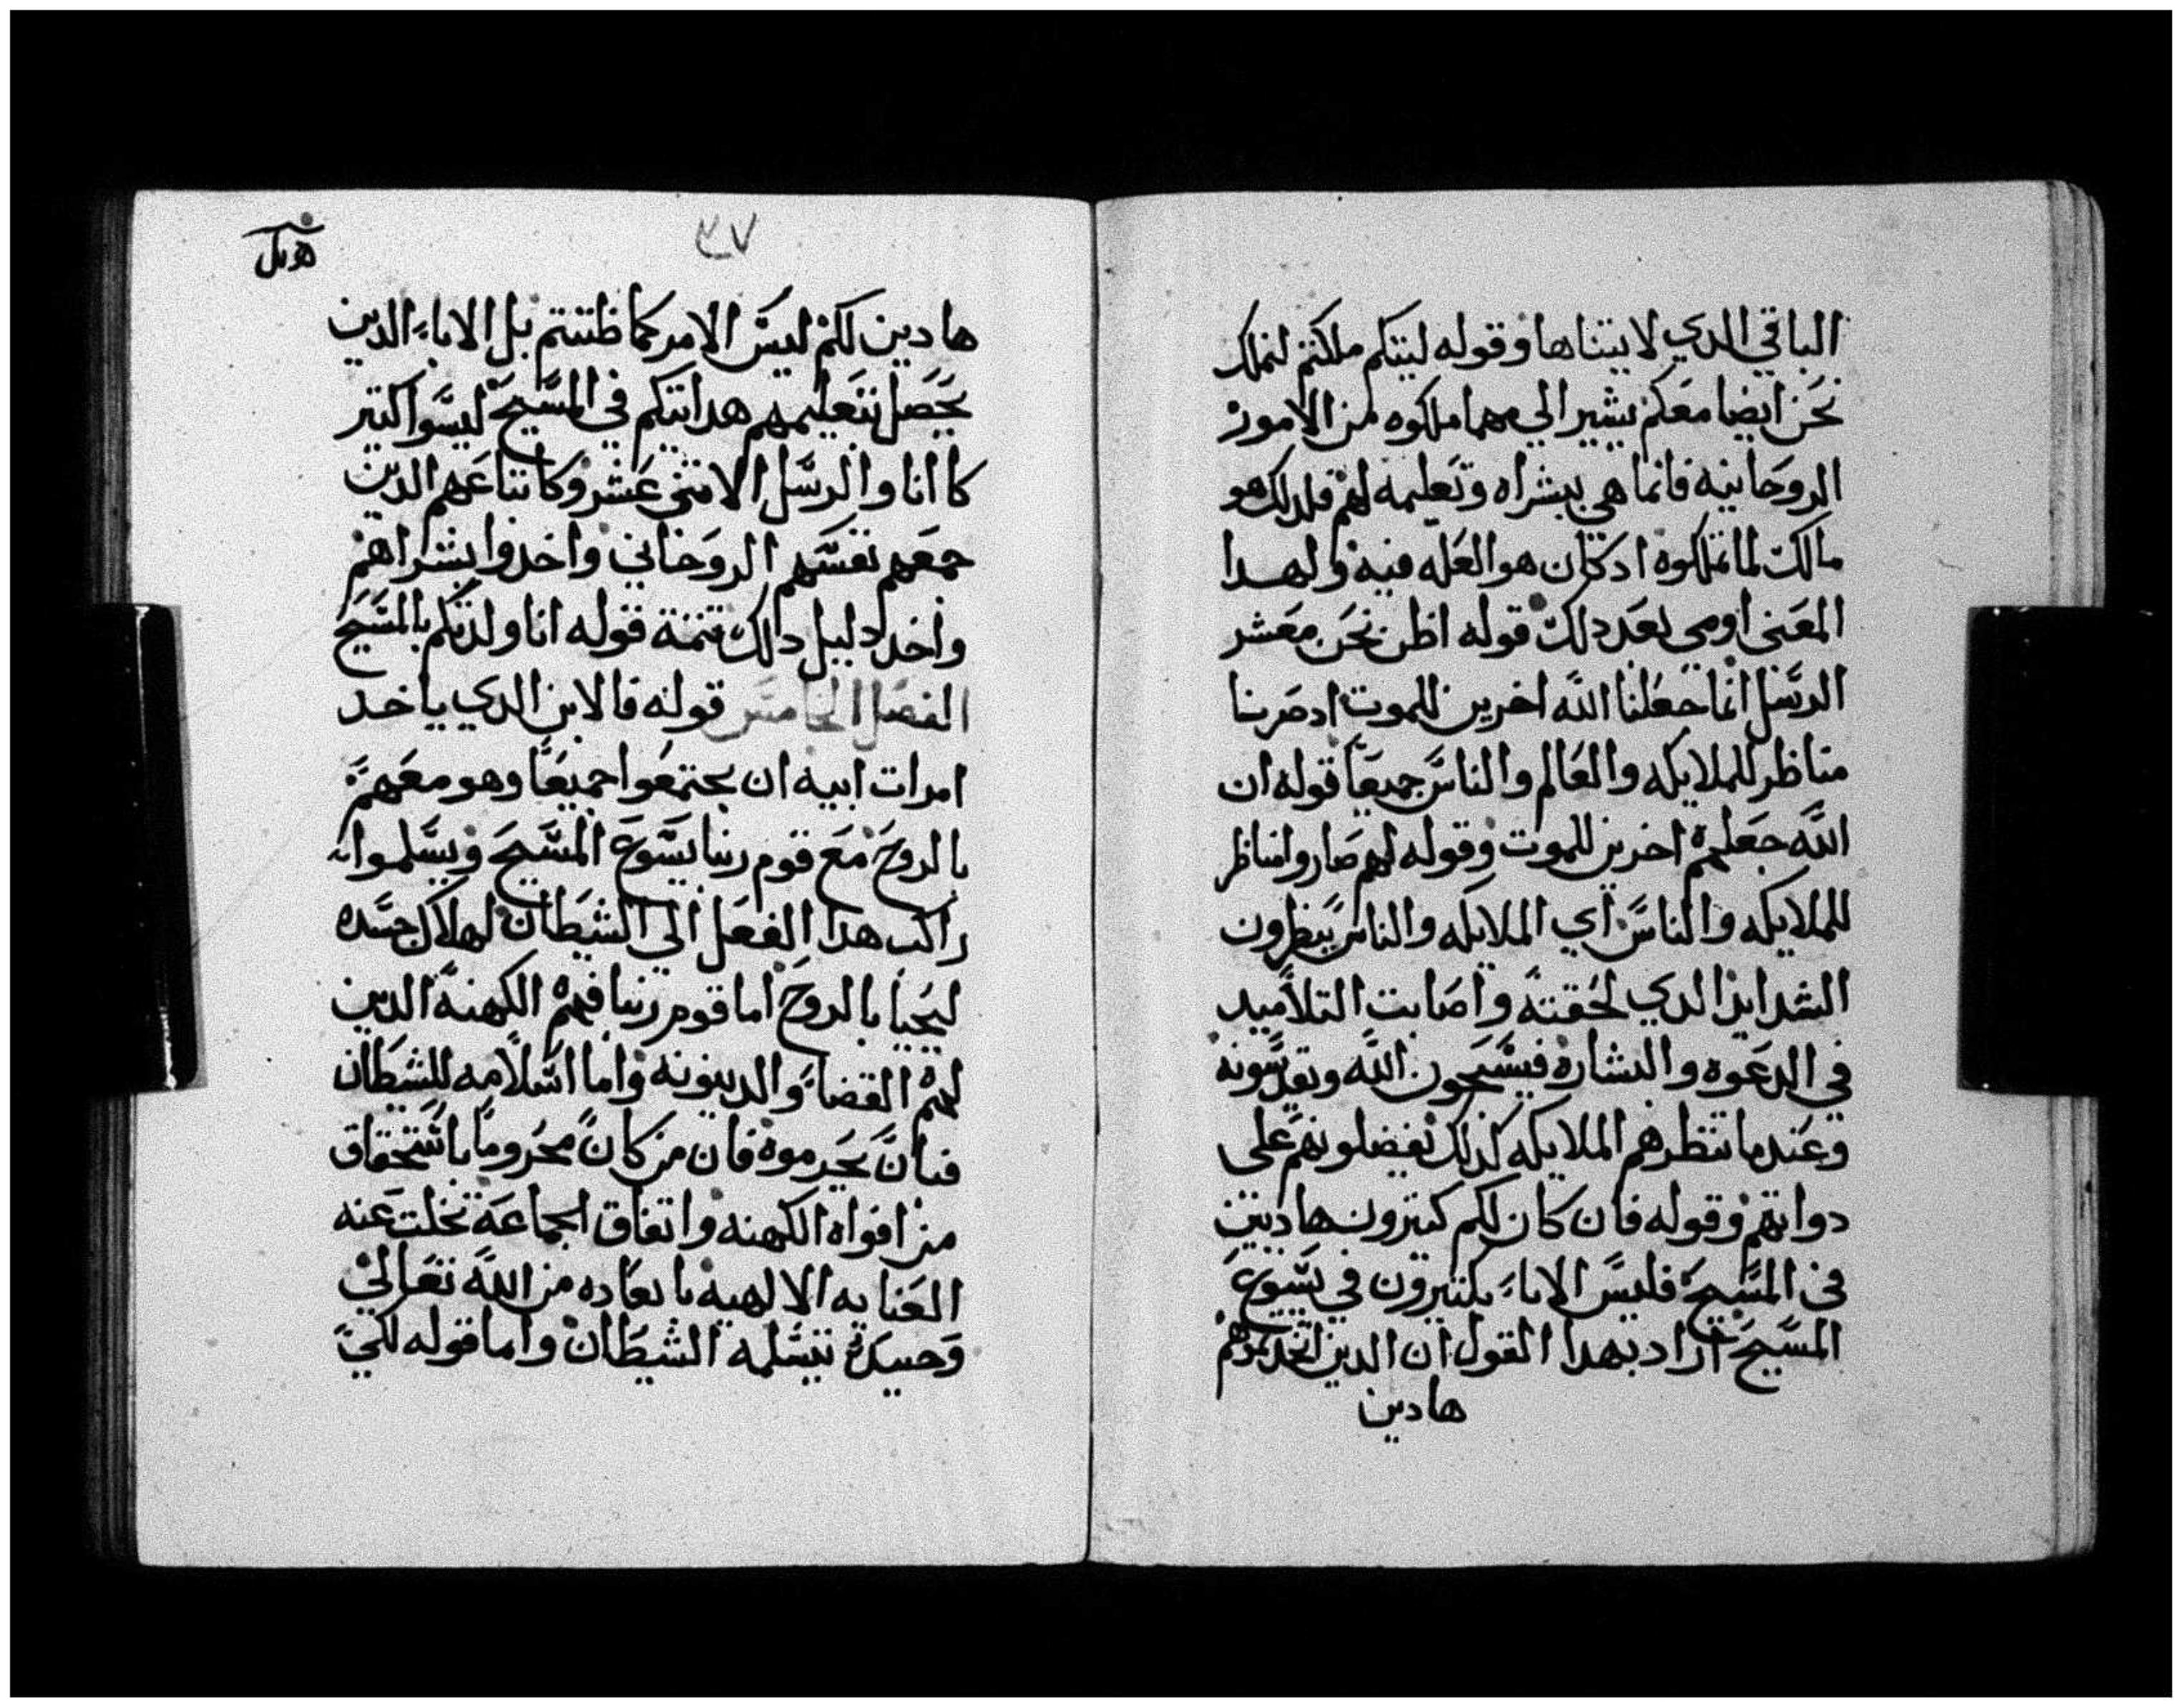 الباقي الدي لا يتناها وقوله ليتكم ملكتم لنملك
نحن ايضا معكم يشير الي مهما ملكوه من الامور
الروحانيه فانما هي ببشراه وتعليمه لهم فلدلك هو
مالكت لما تملكوه ادكان هو العله فيه ولهدا
المعني اومي بعد دلك قوله اظن نحن معشر
الرسل انما جعلنا الله اخرين للموت ادصرنا
مناظر للملايكه والعالم والناس جميعا قوله ان
الله جعلهم اخرين للموت وقوله لهم صاروا مناظر
للملايكه والناس اي الملايكه والناس ينظرون
الشدايد الدي لحقته واصابت التلاميد
في الدعوه والبشاره فيسبحون الله ويقدسونه
وعندما تنظرهم الملايكه كدلك يفضلونهم علي
دواتهم وقوله فان كان لكم كتيرون هاديين
في المسيح فليس الاباء بكتيرون في يسوع
المسيح اراد بهدا القول ان الدين اتخدتموهم
هادين
٣٧
هادين لكم ليس الامر كما ظننتم بل الاباء الدين
يحصل بتعليمهم هدايتكم في المسيح ليسوا كتير
كا انا والرسل الاتني عشر وكاتباعهم الدين
جمعهم نفسهم الروحاني واخدوا بشراهم
واخد دليل دلك تتمة قوله انا ولدتكم بالمسيح
الفصل الخامس قوله فالابن الدي ياخد
امرات ابيه ان يجتمعوا جميعا وهو معهم
بالروح مع قوم ربنا يسوع المسيح ويسلموا
راكب هدا الفعل الي الشيطان لهلاك جسده
ليحيا بالروح اما قوم ربنا فهم الكهنة الدين
لهم القضاء والدينونه واما اسلامه للشيطان
فبان يحرموه فان من كان محروما باستحقاق
من افواه الكهنه واتفاق الجماعة تخلت عنه
العنايه الالهيه بابعاده من الله تعالي
وحينيد يتسلمه الشيطان واما قوله لكي